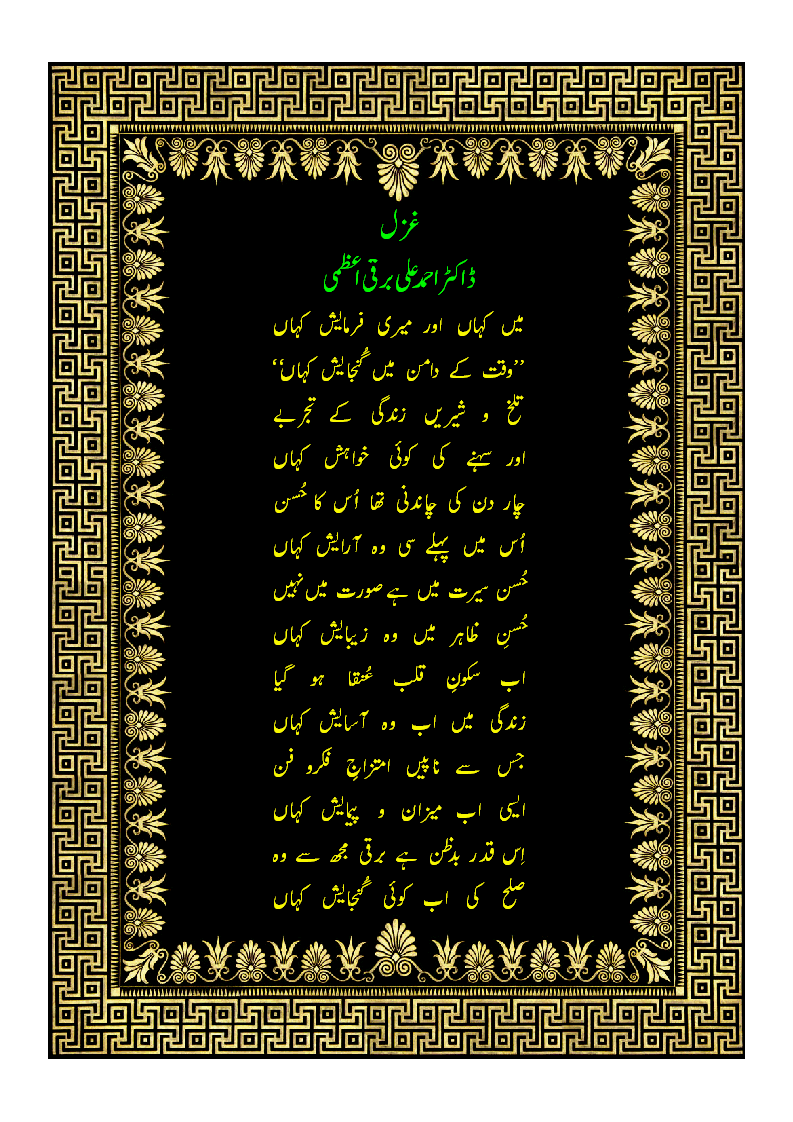 غزل
ڈاکٹر احمد علی برقی اعظمی
میں کہاں اور میری فرمایش کہاں
’’وقت کے دامن میں گُنجایش کہاں‘‘
تلخ و شیریں زندگی کے تجربے
اور سہنے کی کوئی خواہش کہاں
چار دن کی چاندنی تھا اُس کا حُسن
اُس میں پہلے سی وہ آرایش کہاں
حُسن سیرت میں ہے صورت میں نہیں
حُسنِ ظاہر میں وہ زیبایش کہاں
اب سکونِ قلب عُنقا ہو گیا
زندگی میں اب وہ آسایش کہاں
جس سے ناپیں امتزاجِ فکرو فن
ایسی اب میزان و پیمایش کہاں
اِس قدر بدظن ہے برقی مجھ سے وہ
صلح کی اب کوئی گُنجایش کہاں